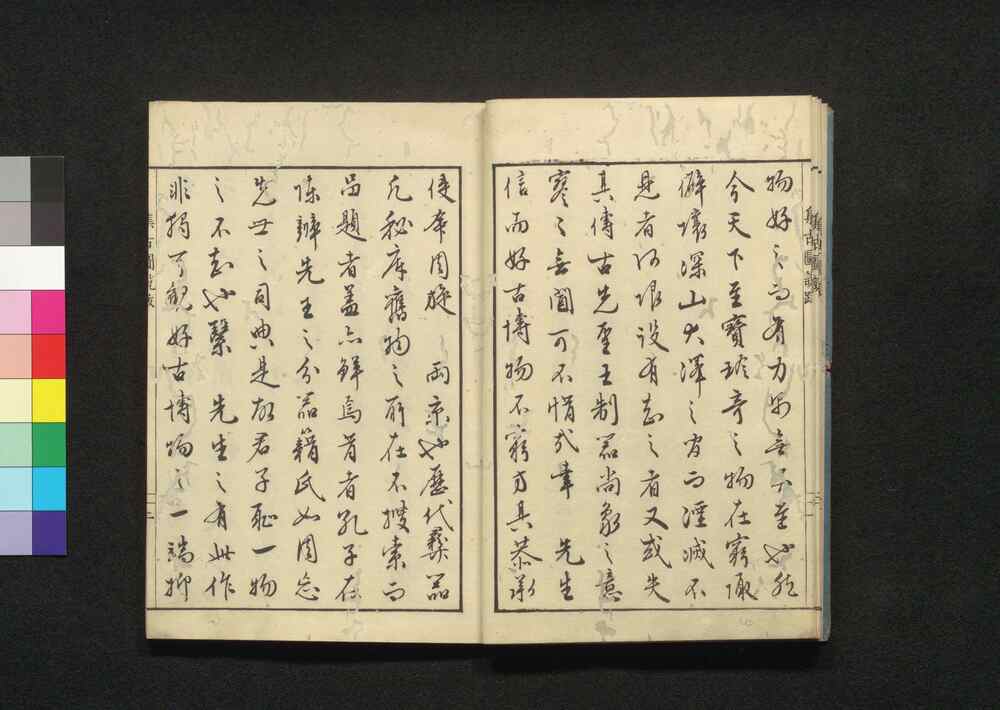 物好之而有力與無不至也然
今天下至寶珍奇之物在窮陬
僻壤深山大澤之間而湮滅不
見者何限設有志之者又或失
其傳古先聖王制器尚象之意
寥々無聞可不惜哉幸　先生
信而好古博物不窮方具恭承
使命周旋　兩京也歴代彝器
凡秘库舊物之所在不搜索而
品題者蓋亦鮮焉昔者孔子在
陳辨先王之分器籍氏如周忘
先世之司典是故君子耻一物
之不知也繄　先生之有此作
非獨可觀好古博物之一端抑
集古圖